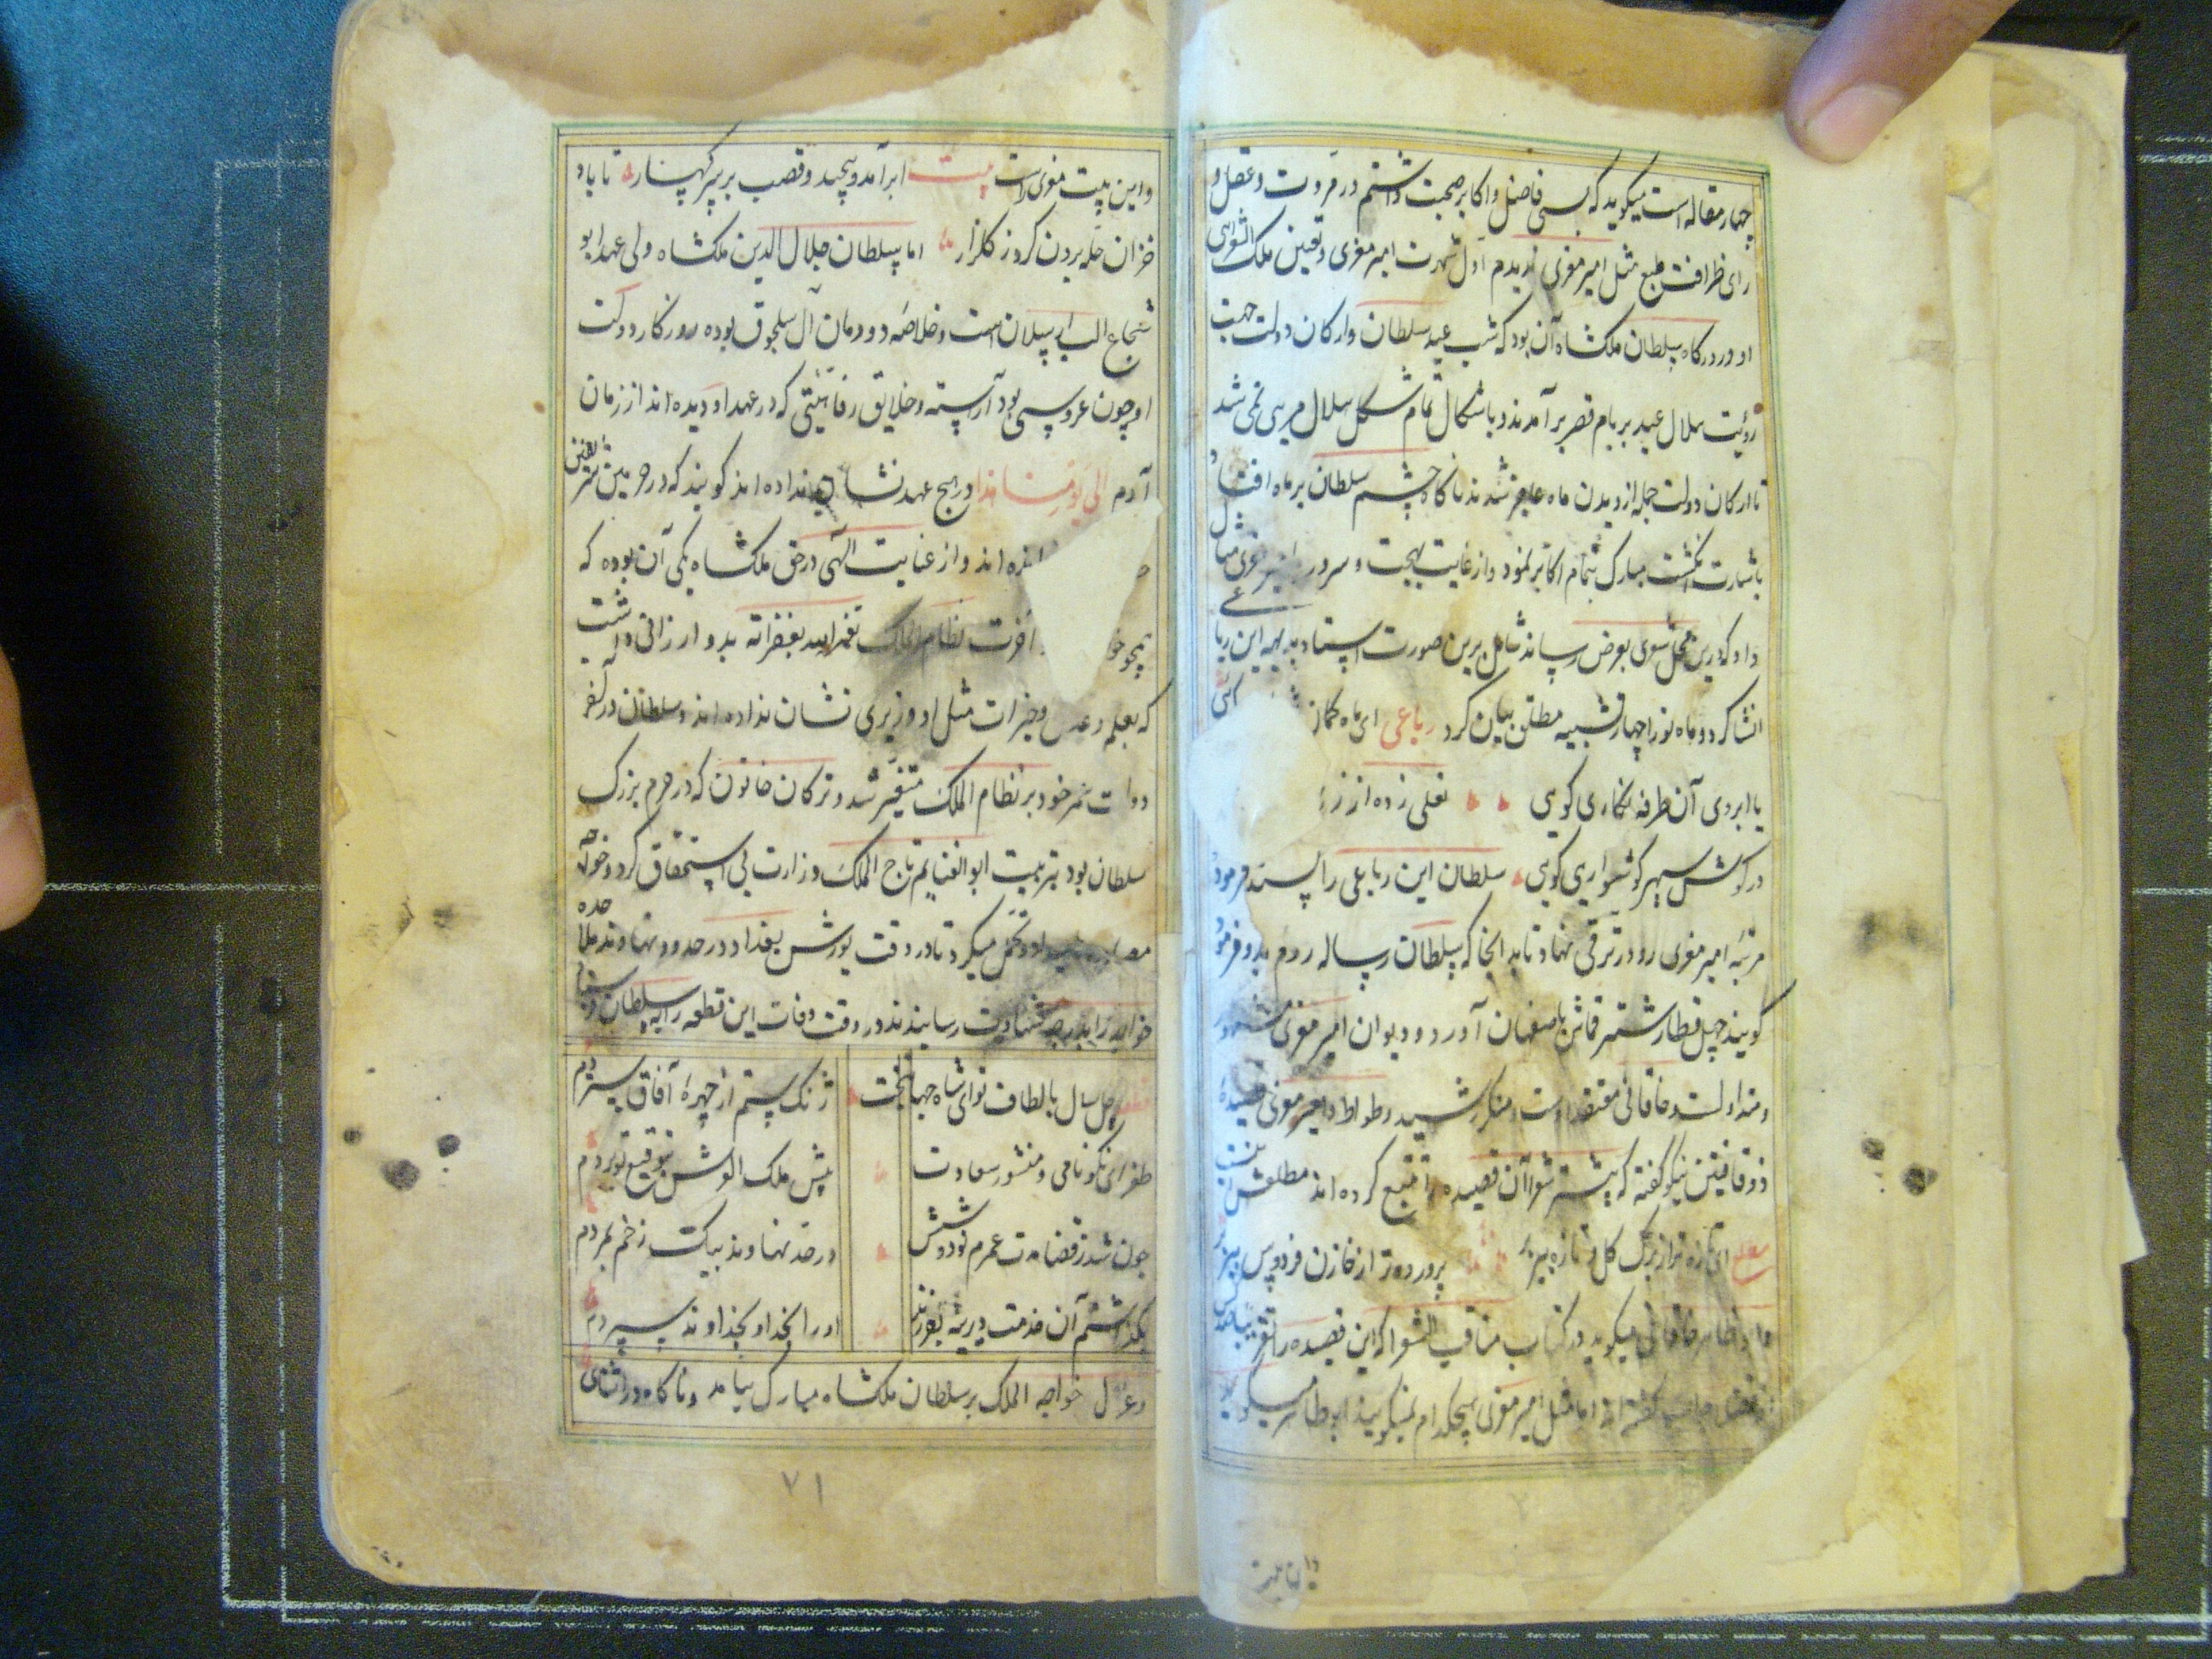 چهار مقاله است میکوید که بسی فاضل و اکابر صحبت داشتم در مروت و عقل و
رای و ظرافت طبع مثل امیر معزی ندیدم اول شهرت امیر معزی و تعین ملک الشعرایی
او در درکاه سلطان ملکشاه آن بود که شب عید سلطان و ارکان دولت جهت
رؤیت هلال عید بر بام قصر برآمدند و باشکال تمام شکل هلال مریی نمی شد
تا ارکان دولت جمله از دیدن ماه عاجز شدند ناکاه چشم سلطان بر ماه افتاد
باشارت انکشت مبارک بتمام اکابر نمود و از غایت بهجت و سرور امیر معزی مثال
داد که درین محل شعری بعرض رساند شامل برین صورت استاد بدیهه این رباعی
انشا کرد و ماه نو را چهار تشبیه مطلق بیان کرد رباعی ای ماه کمان
یا ابروی آن طرفه نکاری کویی نعلی زده از زر
در کوش سپهر کوشواری کویی سلطان این رباعی را پسند فرمود
مرتبه امیر معزی رو در ترقی نهاد تا بدانجا که سلطان رساله روم بدو فرمود
کویند چهل قطار شتر قماش باصفهان آورد و دیوان امیر معزی مشهور
و متداولست و خاقانی معتقد اوست و منکر رشید وطواط و امیر معزی قصیدهٔ
ذو قافیتین نیکو کفته که بیشتر شعرا آن قصیده را تتبع کرده اند مطلعش اینست
ای تازه تر از برک کل تازه ببر بر پرورده ترا خازن فردوس ببر بر
خاقانی میکوید در کتاب مناقب الشعرا که این قصیده را
اما مثل امیر معزی هیچکدام نمیکویند ابوطاهر میکوید
و این بیت معزی راست بیت ابر آمد و پیچید و قصب بر سر کهسار تا باد
خزان حله برون کرد ز کلزار اما سلطان جلال الدین ملکشاه ولی عهد ابو
شجاع الب ارسلان است و خلاصه دودمان آل سلجوق بوده روزکار دولت
او چون عروسی بود آراسته و خلایق رفاهیتی که در عهد او دیده اند از زمان
آدم الی یومنا هذا در هیچ عهد نشان نداده اند کویند که در حرمین شریفین
اند و از عنایت الهی در حق ملکشاه یکی آن بوده که
همچو خواجه نظام الملک تغمده الله بغفرانه بدو ارزانی داشت
که بعلم و عدل و خیرات مثل او وزیری نشان نداده اند و سلطان در آخر
دولت عمر خود بر نظام الملک متغیر شد و ترکان خاتون که در حرم بزرک
سلطان بود بتربیت ابو الغنایم تاج الملک وزارت بی استحقاق کرد و خواجه
تحمل میکرد تا در وقت یورش بغداد در حدود نهاوند ملاحده
خواجه را بدرجه شهادت رسانیدند در وقت وفات این قطعه را به سلطان فرستاد
قطعه چل سال بالطاف تو ای شاه جهانبخت زنک ستم از چهرهٔ آفاق ستردم
طغرای نکونامی و منشور سعادت پیش ملک العرش بتوقیع تو بردم
چون شد ز قضا مدت عمرم نود و شش در حد نهاوند بیک زخم بمردم
بکذاشتم آن خدمت دیرینه بفرزند او را بخدا و بخداوند سپردم
و عزل خواجه الملک بر سلطان ملکشاه مبارک نیامد و ناکاه در اثنای
۷۱